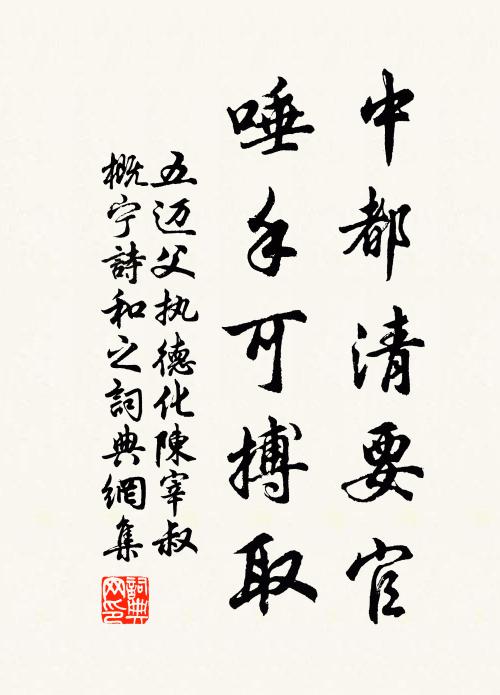 中都清要官
唾手可搏取
五迈父执德化陳宰叔
概宁詩和之詞典網集
詞典网印